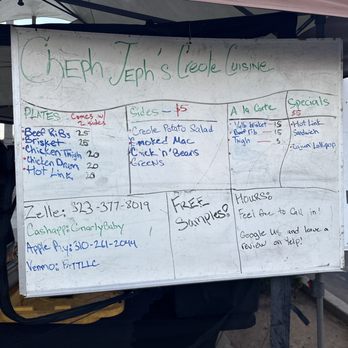 Cheph Jeph's Creole Cuisine
PLATES - Comes w/ 2 sides
Beef Ribs 25
Brisket 25
Chicken Thigh 20
Chicken Drum 20
Hot Link 20
Sides - $5
Creole Potato Salad
Smoked Mac
Chick 'n' Beans
Greens
A la Carte
- 15
Beef Rib - 15
Thigh - 5
Specials
$5
Hot Link
Sandwich
Lollipop
Zelle: 323-377-8019
Cashapp: GnarlyBaby
Apple Pay: 310-261-2044
Venmo:
FREE
Samples?
HOURS:
Feel free to call in!
Google us and leave a
review on Yelp!